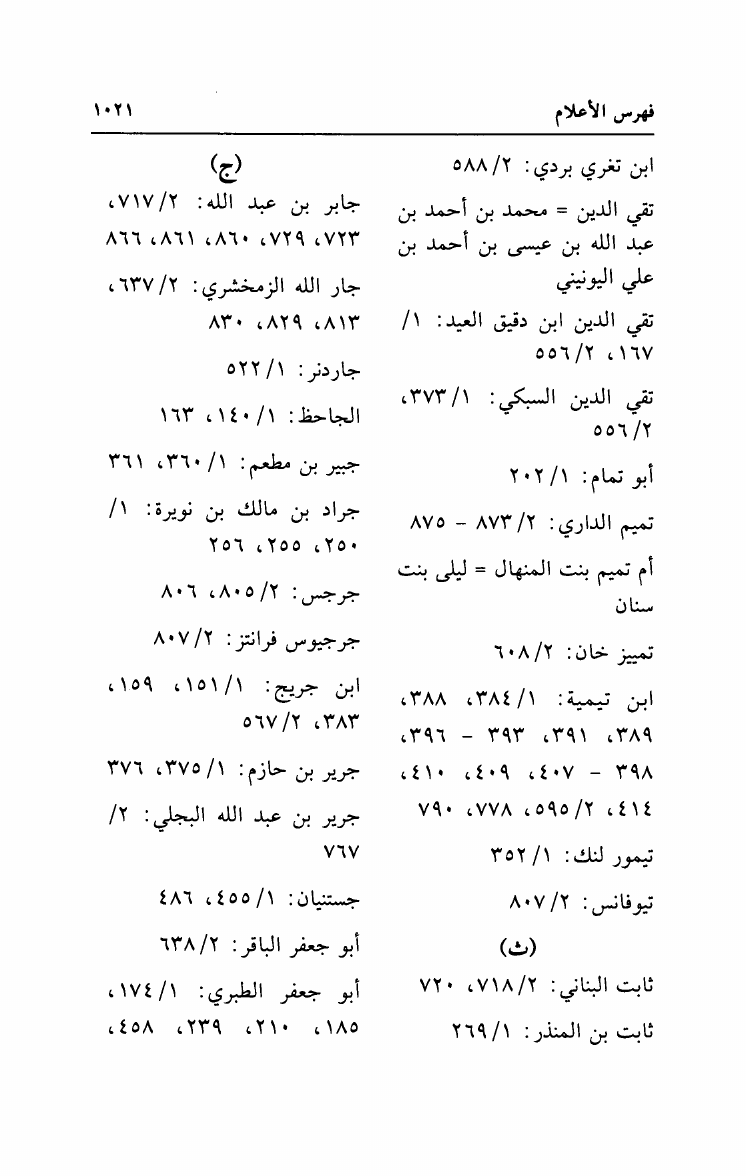 فهرس الأعلام ١٠٢١
ابن تغري بردي: ٥٨٨/٢
تقي الدين = محمد بن أحمد بن
عبد الله بن عيسى بن أحمد بن
علي اليونيني
تقي الدين ابن دقيق العيد: ١/
١٦٧، ٥٥٦/٢
تقي الدين السبكي: ٣٧٣/١،
٥٥٦/٢
أبو تمام: ٢٠٢/١
تميم الداري: ٨٧٣/٢ - ٨٧٥
أم تميم بنت المنهال = ليلى بنت
سنان
تمييز خان: ٦٠٨/٢
ابن تيمية: ٣٨٤/١، ٣٨٨،
٣٨٩، ٣٩١، ٣٩٣ - ٣٩٦،
٣٩٨ - ٤٠٧، ٤٠٩، ٤١٠،
٤١٤، ٥٩٥/٢، ٧٧٨، ٧٩٠
تيمور لنك: ٣٥٢/١
تيوفانس: ٨٠٧/٢
(ث)
ثابت البناني: ٧١٨/٢، ٧٢٠
ثابت بن المنذر: ٢٦٩/١
(ج)
جابر بن عبد الله: ٧١٧/٢،
٧٢٣، ٧٢٩، ٨٦٠، ٨٦١، ٨٦٦
جار الله الزمخشري: ٦٣٧/٢،
٨١٣، ٨٢٩، ٨٣٠
جاردنر: ٥٢٢/١
الجاحظ: ١٤٠/١، ١٦٣
جبير بن مطعم: ٣٦٠/١، ٣٦١
جراد بن مالك بن نويرة: ١/
٢٥٠، ٢٥٥، ٢٥٦
جرجس: ٨٠٥/٢، ٨٠٦
جرجيوس فرانتز: ٨٠٧/٢
ابن جريج: ١٥١/١، ١٥٩،
٣٨٣، ٥٦٧/٢
جرير بن حازم: ٣٧٥/١، ٣٧٦
جرير بن عبد الله البجلي: ٢/
٧٦٧
جستنيان: ٤٥٥/١، ٤٨٦
أبو جعفر الباقر: ٦٣٨/٢
أبو جعفر الطبري: ١٧٤/١،
١٨٥، ٢١٠، ٢٣٩، ٤٥٨،